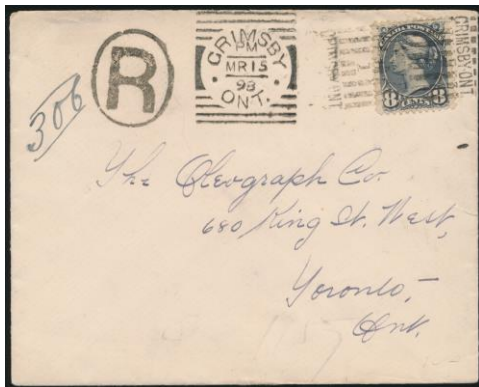 R
306
GRIMSBY
PM
MR 15
93
ONT.
GRIMSBY-ONT
CANADA POSTAGE
8 CENTS 8
The Oleograph Co.
680 King St. West,
Toronto,
Ont.